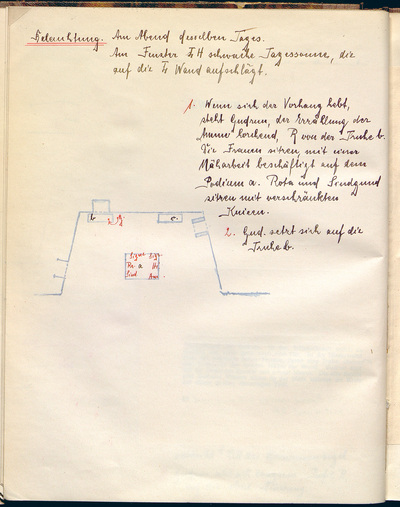 Beleuchtung. Am Abend desselben Tages.
Am Fenster LH schwache Tagessonne, die
auf die L Wand aufschlägt.
1. Wenn sich der Vorhang hebt,
steht Gudrun, der Erzählung der
Amme horchend, R von der Truhe b.
Die Frauen sitzen mit einer
Näharbeit beschäftigt auf dem
Podium a. Rota und Sindgund
sitzen mit verschränkten
Knieen.
2. Gud. setzt sich auf die
Truhe b.
b 2 1 c.
Signe Sig
Ro a He
Sind Am